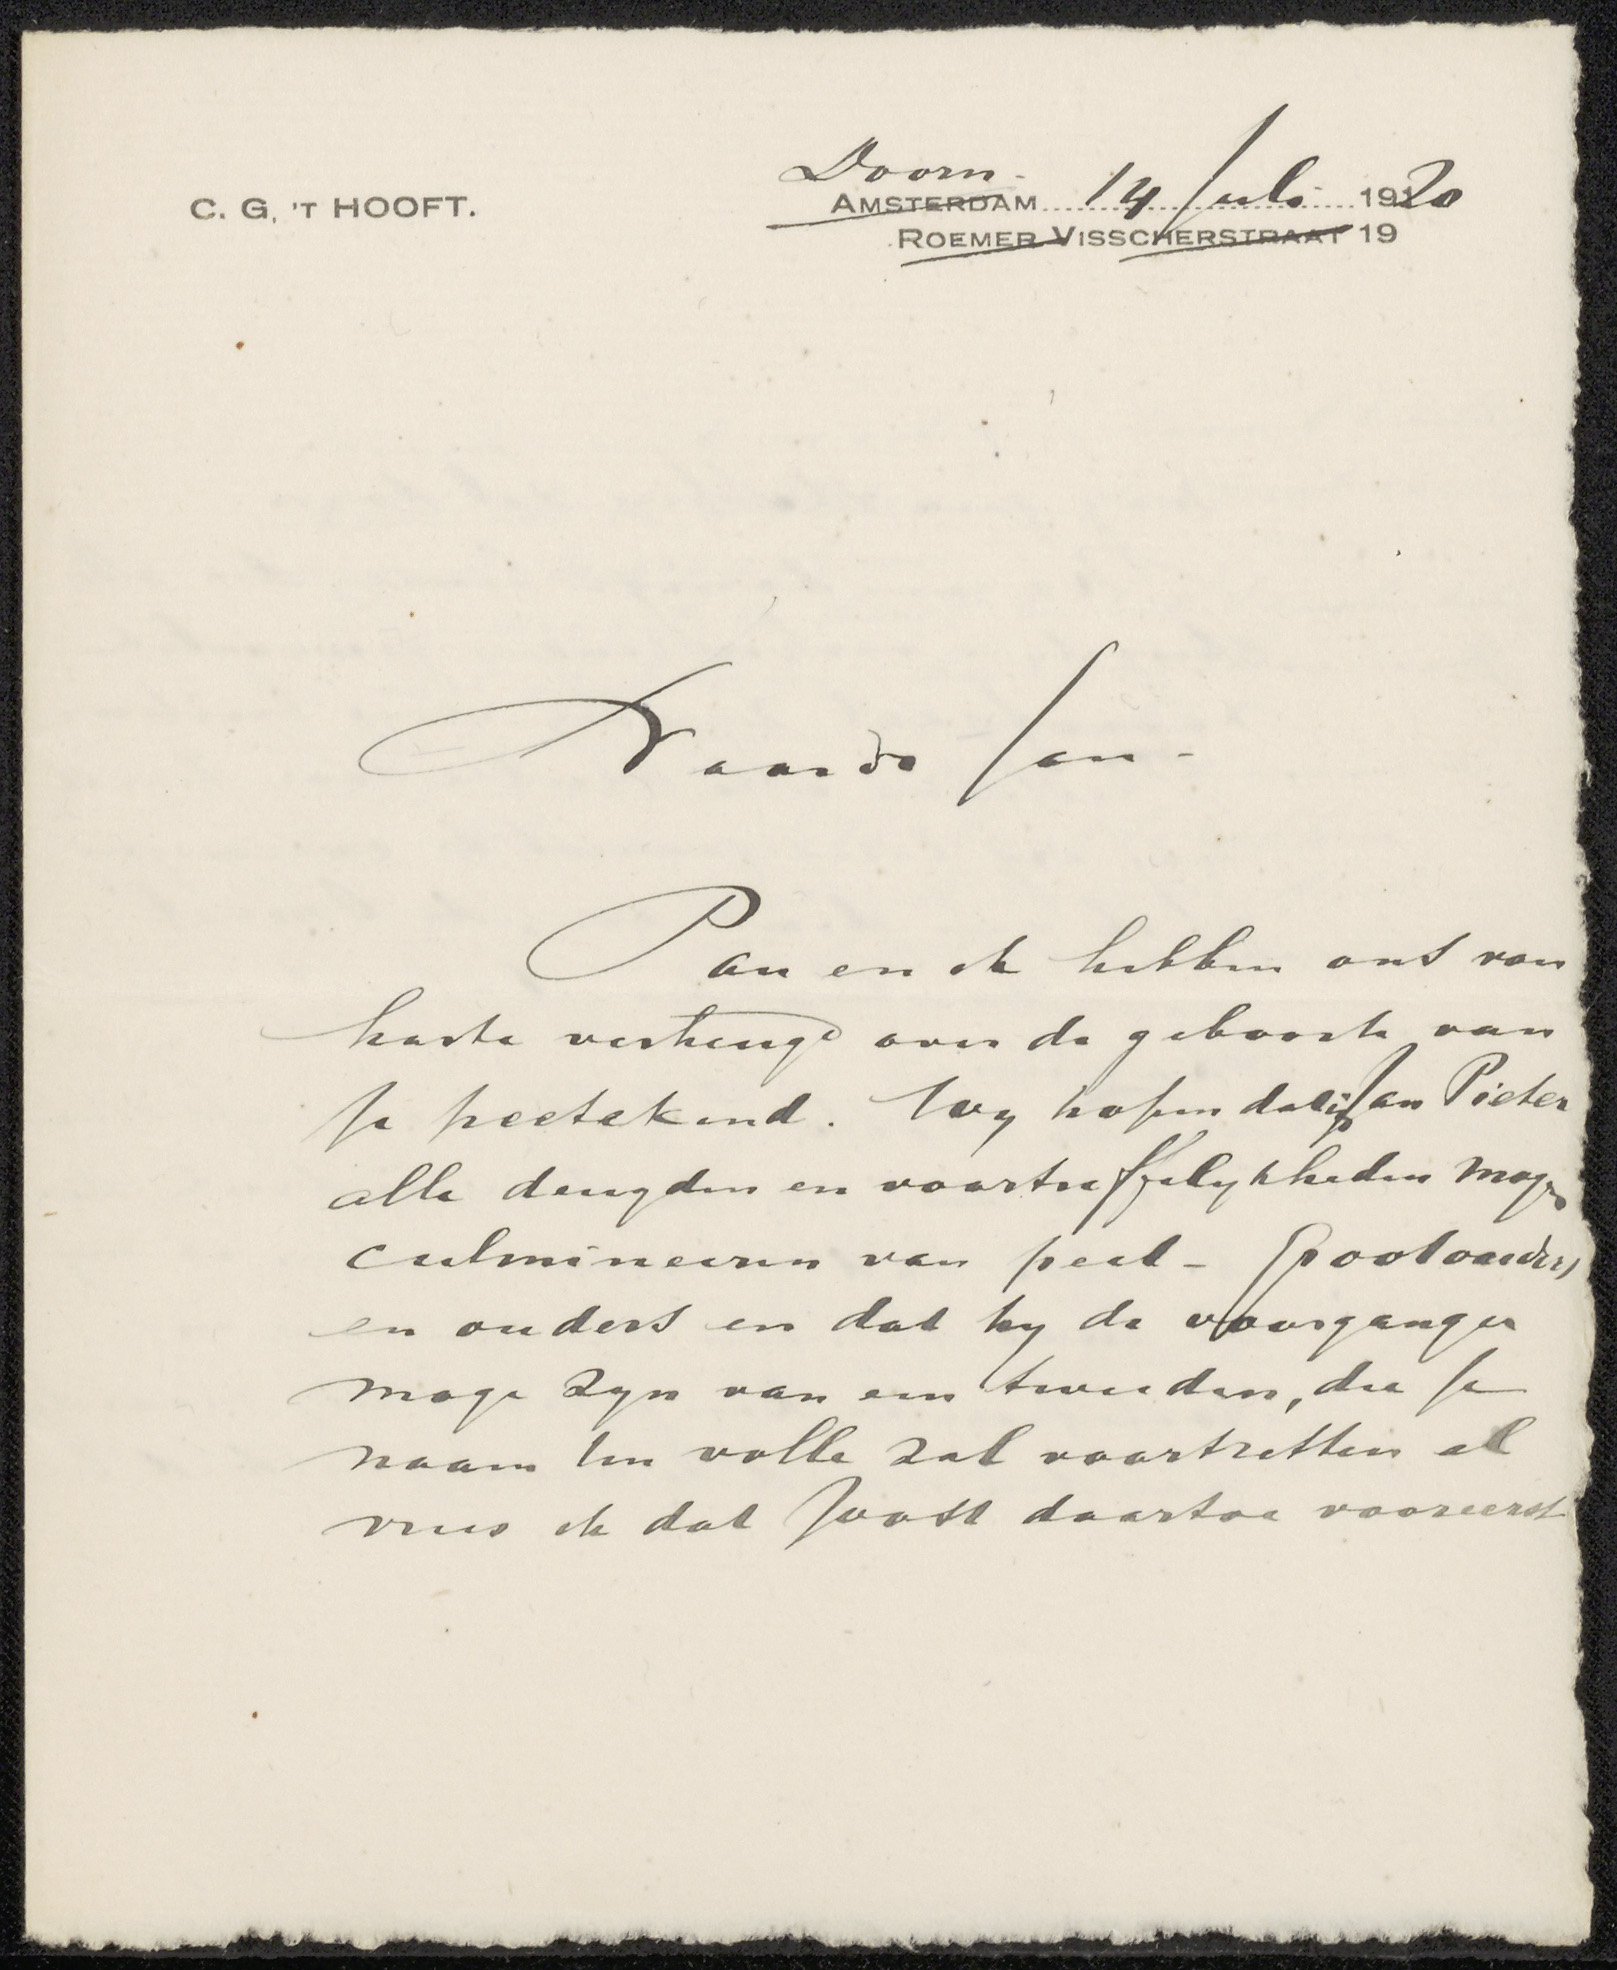 Doorn.
C. G. 'T HOOFT.
AMSTERDAM 14 Juli 1920
ROEMER VISSCHERSTRAAT 19
Waarde Jan -
Pau en ik hebben ons van
harte verheugd over de geboorte van
je peetekind. Wy hopen dat in Jan Pieter
alle deugden en voortreffelykheden mogen
culmineeren van peet - grootouders
en ouders en dat hy de voorganger
moge zyn van een tweeden, die je
naam ten volle zal voortzetten al
vrees ik dat Joost daartoe vooreerst